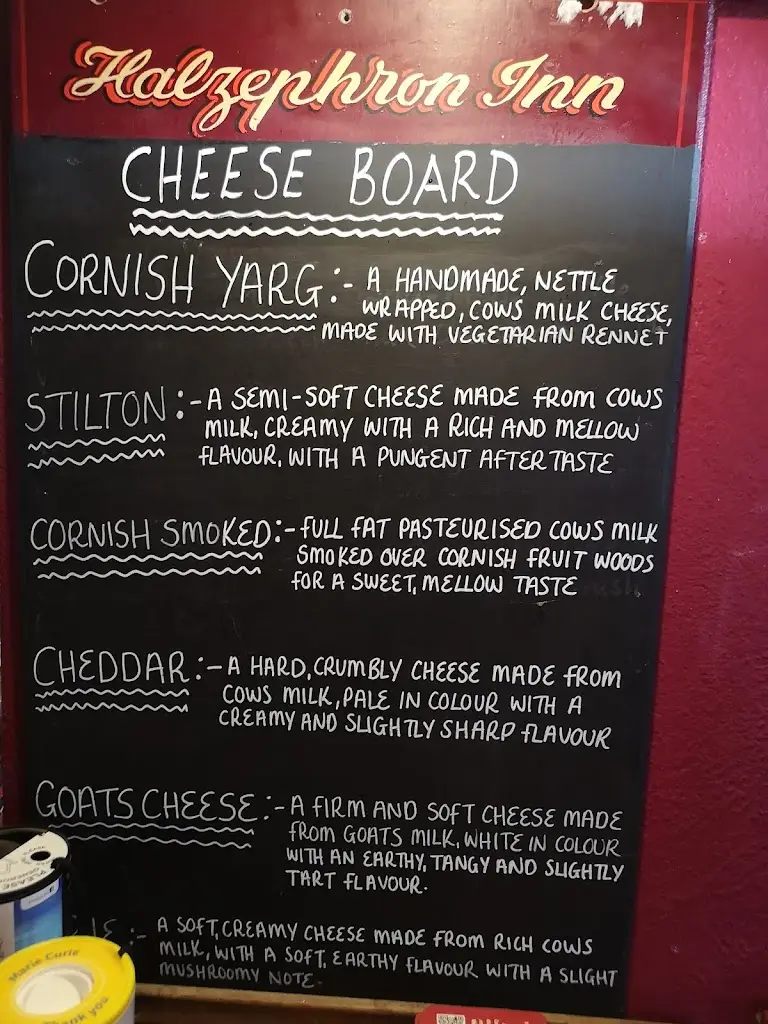 Halzephron Inn
CHEESE BOARD
CORNISH YARG:- A HANDMADE, NETTLE
WRAPPED, COWS MILK CHEESE,
MADE WITH VEGETARIAN RENNET
STILTON:- A SEMI-SOFT CHEESE MADE FROM COWS
MILK, CREAMY WITH A RICH AND MELLOW
FLAVOUR, WITH A PUNGENT AFTERTASTE
CORNISH SMOKED:- FULL FAT PASTEURISED COWS MILK
SMOKED OVER CORNISH FRUIT WOODS
FOR A SWEET, MELLOW TASTE
CHEDDAR:- A HARD, CRUMBLY CHEESE MADE FROM
COWS MILK, PALE IN COLOUR WITH A
CREAMY AND SLIGHTLY SHARP FLAVOUR
GOATS CHEESE:- A FIRM AND SOFT CHEESE MADE
FROM GOATS MILK, WHITE IN COLOUR
WITH AN EARTHY, TANGY AND SLIGHTLY
TART FLAVOUR.
:- A SOFT, CREAMY CHEESE MADE FROM RICH COWS
MILK, WITH A SOFT, EARTHY FLAVOUR WITH A SLIGHT
MUSHROOMY NOTE.
PLEASE
Marie Curie
thank you